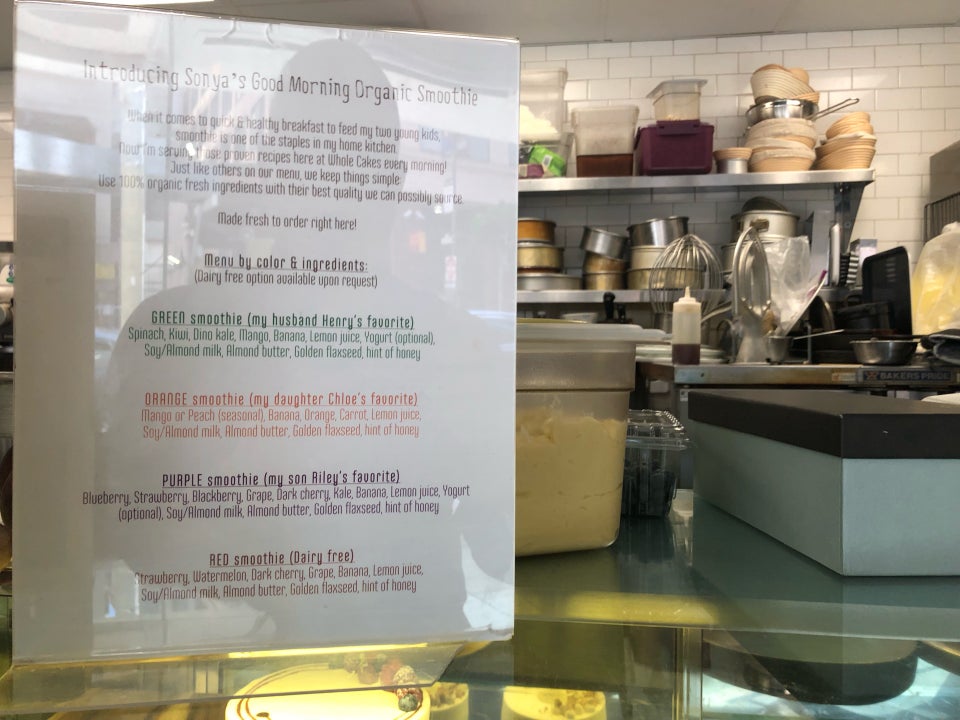 Introducing Sonya's Good Morning Organic Smoothie
When it comes to quick & healthy breakfast to feed my two young kids,
smoothie is one of the staples in my home kitchen.
Now I'm serving those proven recipes here at Whole Cakes every morning!
Just like others on our menu, we keep things simple:
Use 100% organic fresh ingredients with their best quality we can possibly source.
Made fresh to order right here!
Menu by color & ingredients:
(Dairy free option available upon request)
GREEN smoothie (my husband Henry's favorite)
Spinach, Kiwi, Dino kale, Mango, Banana, Lemon juice, Yogurt (optional),
Soy/Almond milk, Almond butter, Golden flaxseed, hint of honey
ORANGE smoothie (my daughter Chloe's favorite)
Mango or Peach (seasonal), Banana, Orange, Carrot, Lemon juice,
Soy/Almond milk, Almond butter, Golden flaxseed, hint of honey
PURPLE smoothie (my son Riley's favorite)
Blueberry, Strawberry, Blackberry, Grape, Dark cherry, Kale, Banana, Lemon juice, Yogurt
(optional), Soy/Almond milk, Almond butter, Golden flaxseed, hint of honey
RED smoothie (Dairy free)
Strawberry, Watermelon, Dark cherry, Grape, Banana, Lemon juice,
Soy/Almond milk, Almond butter, Golden flaxseed, hint of honey
BAKERS PRIDE